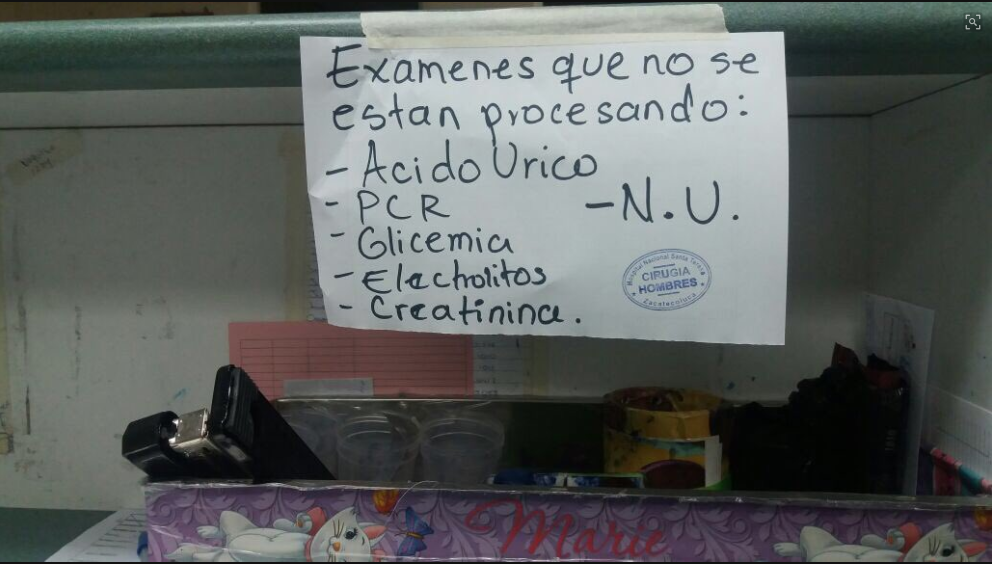 Examenes que no se
estan procesando:
- Acido Urico
- PCR
- N.U.
- Glicemia
- Electrolitos
- Creatinina.
Hospital Nacional Santa Teresa
CIRUGIA
HOMBRES
Zacatecoluca
Marie